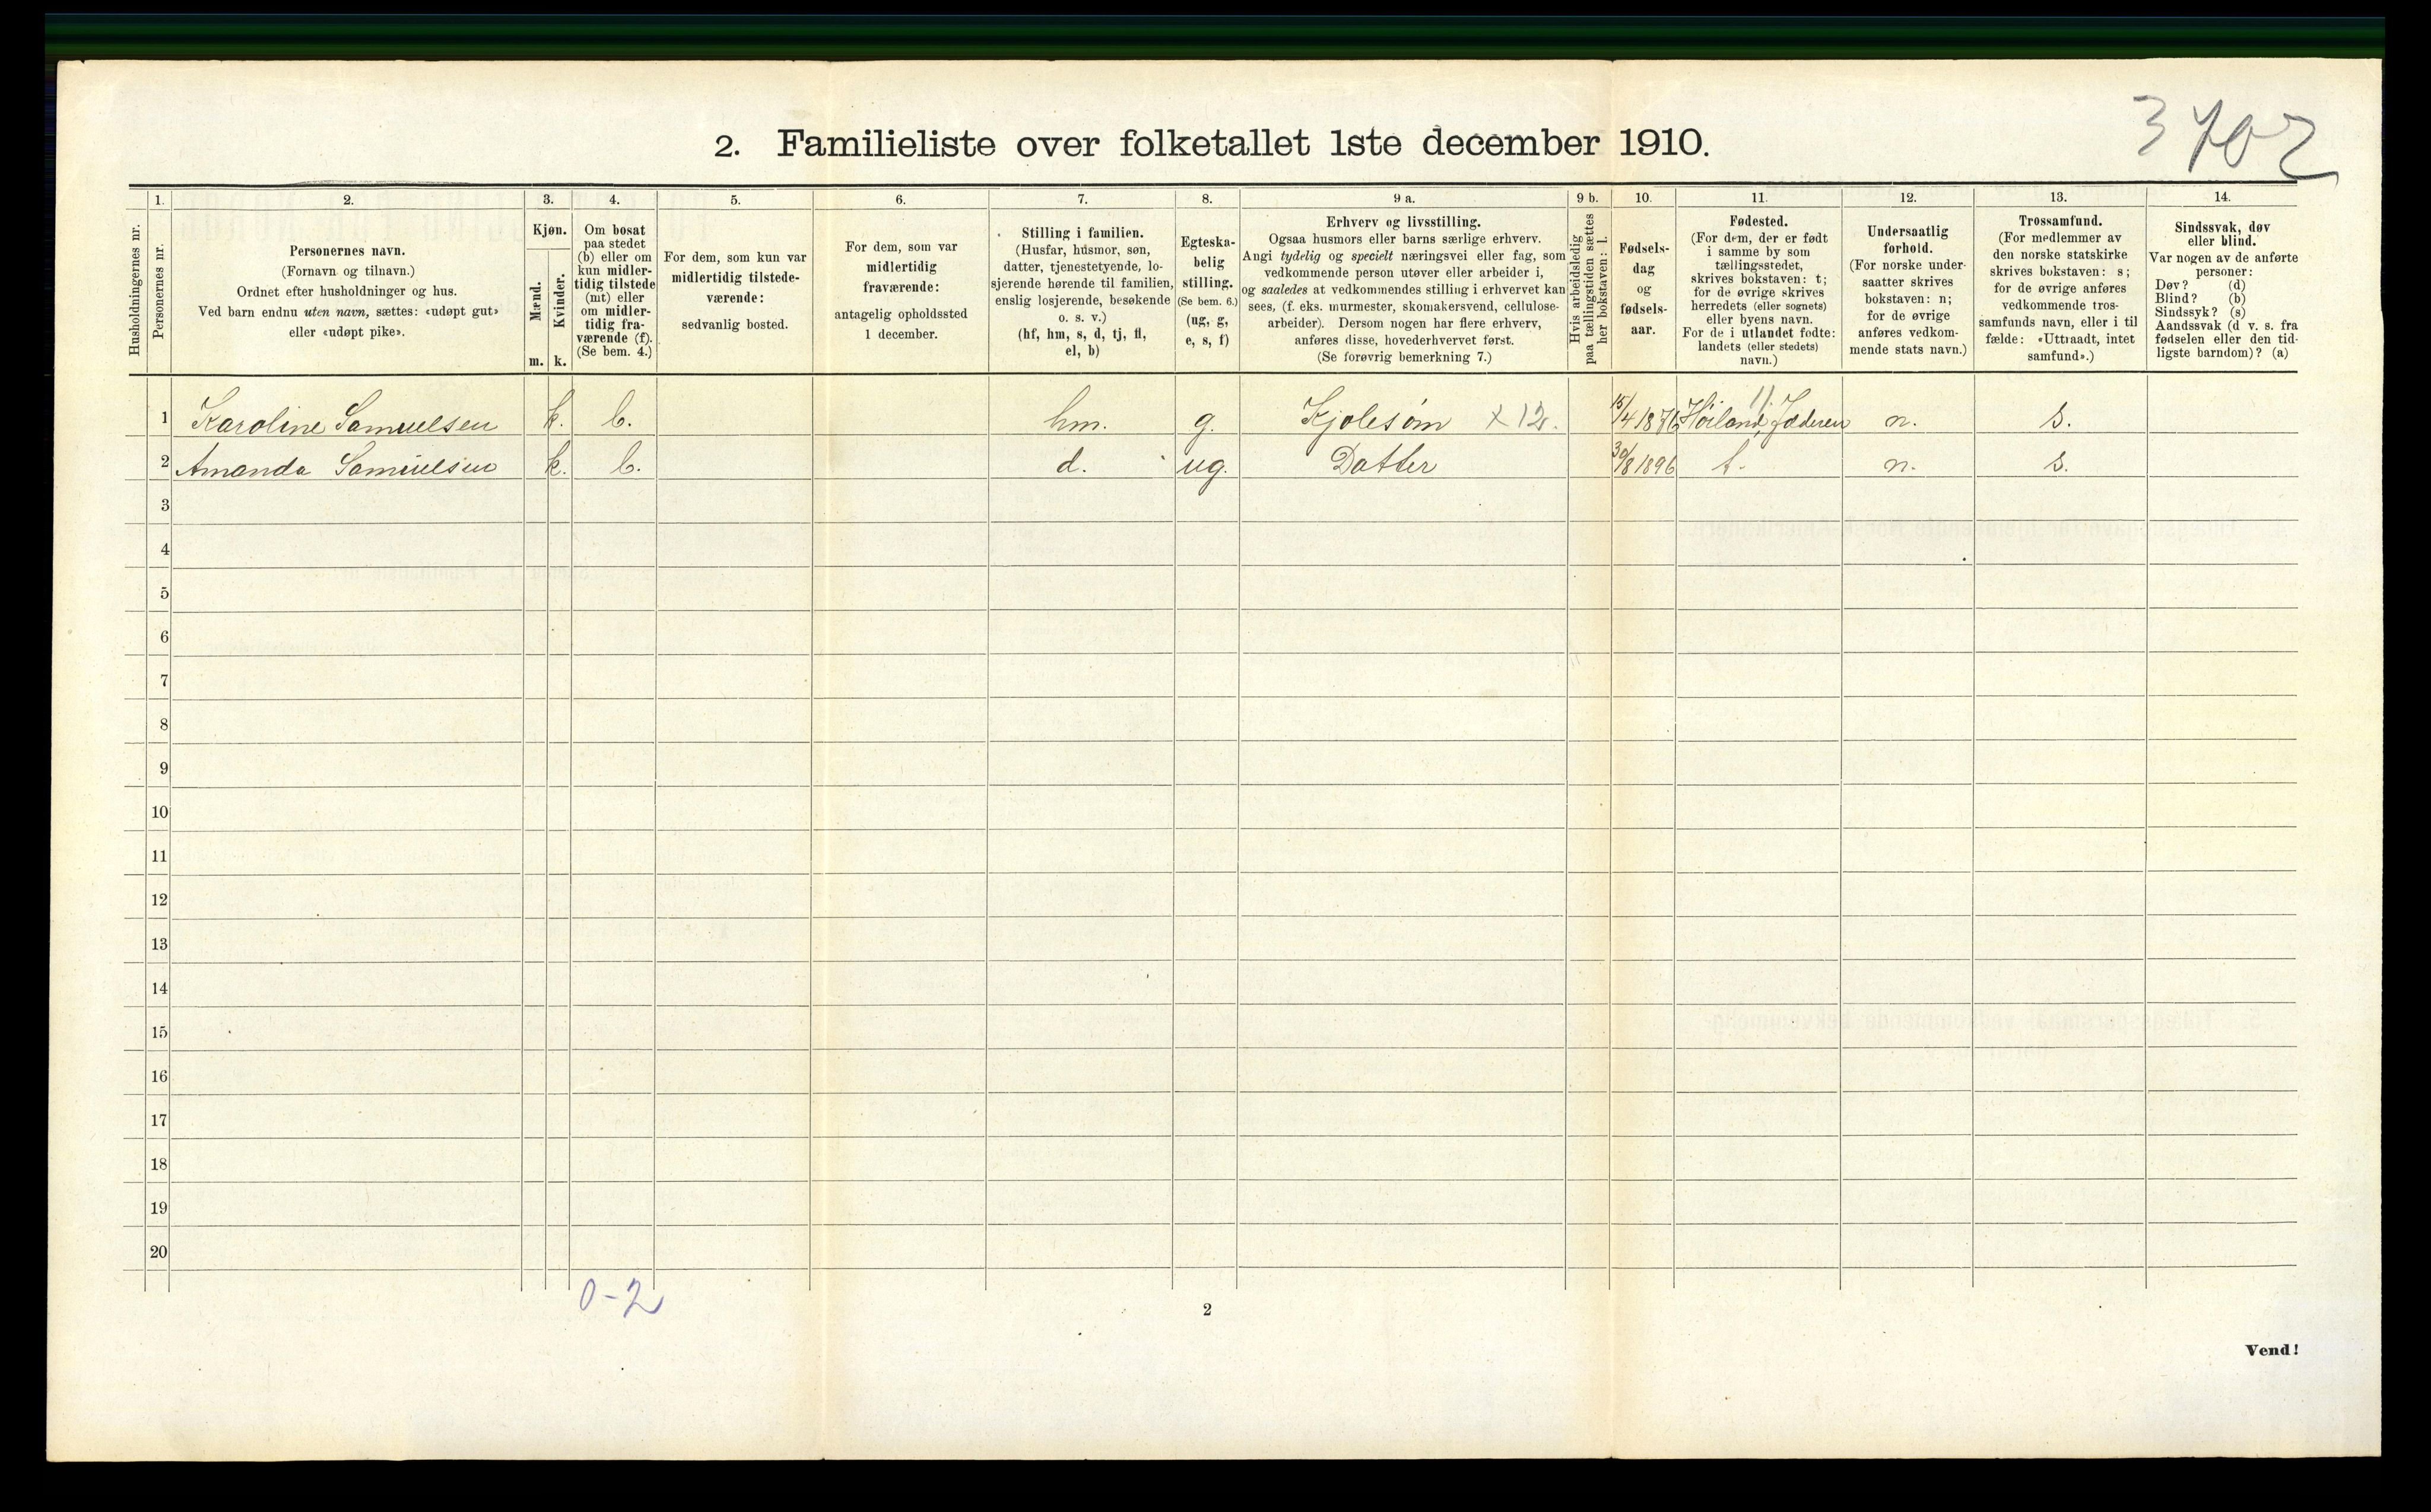 3702
2. Familieliste over folketallet 1ste december 1910.
Husholdningernes nr.
1.
Personernes nr.
2.
Personernes navn.
(Fornavn og tilnavn.)
Ordnet efter husholdninger og hus.
Ved barn endnu uten navn, sættes: «udøpt gut»
eller «udøpt pike».
3.
Kjøn.
Mænd.
m.
Kvinder.
k.
4.
Om bosat
paa stedet
(b) eller om
kun midler-
tidig tilstede
(mt) eller
om midler-
tidig fra-
værende (f).
(Se bem. 4.)
5.
For dem, som kun var
midlertidig tilstede-
værende:
sedvanlig bosted.
6.
For dem, som var
midlertidig
fraværende:
antagelig opholdssted
1 december.
7.
Stilling i familien.
(Husfar, husmor, søn,
datter, tjenestetyende, lo-
sjerende hørende til familien,
enslig losjerende, besøkende
o. s. v.)
(hf, hm, s, d, tj, fl,
el, b)
8.
Egteska-
belig
stilling.
(Se bem. 6.)
(ug, g,
e, s, f)
9 a.
Erhverv og livsstilling.
Ogsaa husmors eller barns særlige erhverv.
Angi tydelig og specielt næringsvei eller fag, som
vedkommende person utøver eller arbeider i,
og saaledes at vedkommendes stilling i erhvervet kan
sees, (f. eks. murmester, skomakersvend, cellulose-
arbeider). Dersom nogen har flere erhverv,
anføres disse, hovederhvervet først.
(Se forøvrig bemerkning 7.)
9 b.
Hvis arbeidsledig
paa tællingstiden sættes
her bokstaven: l.
10.
Fødsels-
dag
og
fødsels-
aar.
11.
Fødested.
(For dem, der er født
i samme by som
tællingsstedet,
skrives bokstaven: t;
for de øvrige skrives
herredets (eller sognets)
eller byens navn.
For de i utlandet fødte:
landets (eller stedets)
navn.)
12.
Undersaatlig
forhold.
(For norske under-
saatter skrives
bokstaven: n;
for de øvrige
anføres vedkom-
mende stats navn.)
13.
Trossamfund.
(For medlemmer av
den norske statskirke
skrives bokstaven: s;
for de øvrige anføres
vedkommende tros-
samfunds navn, eller i til
fælde: «Uttraadt, intet
samfund».)
14.
Sindssvak, døv
eller blind.
Var nogen av de anførte
personer:
Døv? (d)
Blind? (b)
Sindssyk? (s)
Aandssvak (d v. s. fra
fødselen eller den tid-
ligste barndom)? (a)
1 Karoline Samuelsen k. b. hm. g. Kjolesøm x 12. 15/4 1876 Høiland, Jæderen n. s.
2 Amanda Samuelsen k. b. d. ug. Datter 30/8 1896 t. n. s.
3
4
5
6
7
8
9
10
11
12
13
14
15
16
17
18
19
20
0-2
2
Vend!